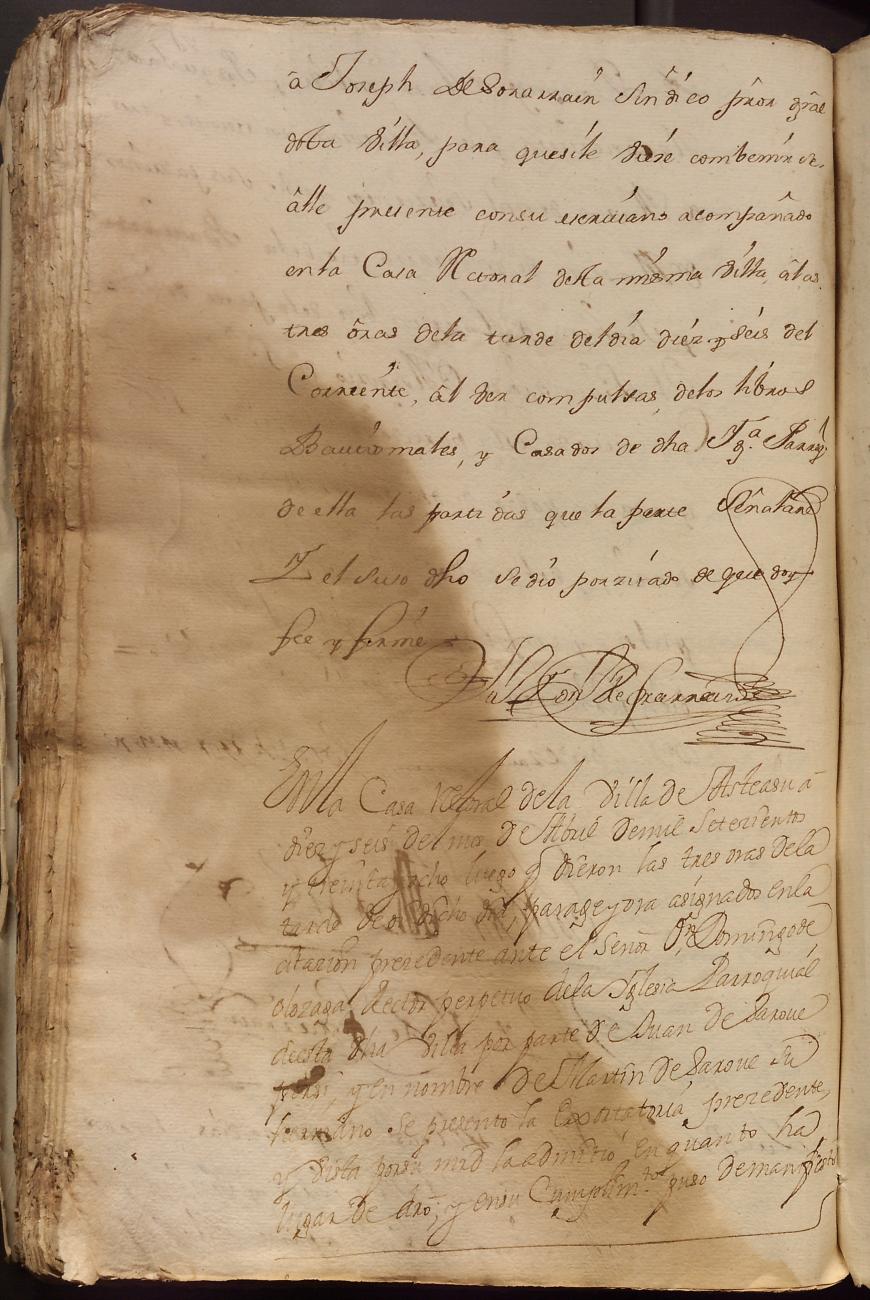 â Joseph De Sorarrain Sindico prōr grāl
desta Villa, para quesile diere combenir se
alle presente consu escriuano acompañado
enla Casa Rctoral desta misma Villa, âlas
tres ôras dela tarde deldia diez y seis del
Corriente, âl ver compulsas, delos libros
Bautismales, y Casados de dha Yg.ª Parroq.l
de ella las partidas que la parte Señalare
Y el suso dho se dio porzitado de que doy
fee y firmé
Enla Casa Rectoral dela Villa de Asteasu â
diez y seis del mes de Abril demil Setezientos
y treinta y ocho luego q dieron las tres oras dela
tarde de dicho dia, parage y ora asignados enla
citazion prezedente ante el Señor Dn Domingo de
olozaga Rector perpetuo dela Yglesia Parroquial
de esta dha Villa por parte de Juan de Yaroue
persi, y en nombre de Martin de Yaroue su
hermano se presento la Exortatoria prezedente,
y vista porsu mrd la admitió en quanto ha
lugar de dro, y ensu Cumplim.to puso demanifiesto